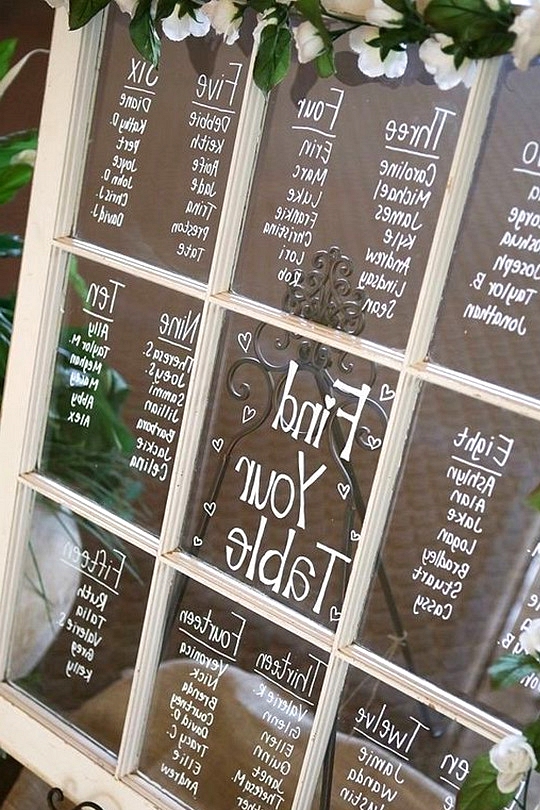 Joseph
Taylor B.
Jonathan
Three
Caroline
Michael
James
Kyle
Andrew
Lindsay
Sean
Four
Erin
Marc
Luke
Frankie
Christina
Lori
Rob
Five
Debbie
Keith
Aoife
Jade
Trina
Preston
Tate
Six
Diane
Kathy D.
Joyce
John D.
Chris J.
David J.
Eight
Ashlyn
Alan
Jake
Logan
Bradley
Stuart
Cassy
Find
Your
Table
Nine
Theresa S.
Joey S.
Sammi
Jillian
Barbara
Jackie
Celina
Ten
Ally
Taylor M.
Meghan
Abby
Alex
Twelve
Jamie
Wanda
Thirteen
Valerie K.
Glenn
Ellen
Quinn
Janet
Theresa M.
Fourteen
Veronica
Nick
Brenda
Courtney
David D.
Tracy C.
Ellie
Andrew
Fifteen
Ruth
Talia
Valerie S
Greg
Kelly